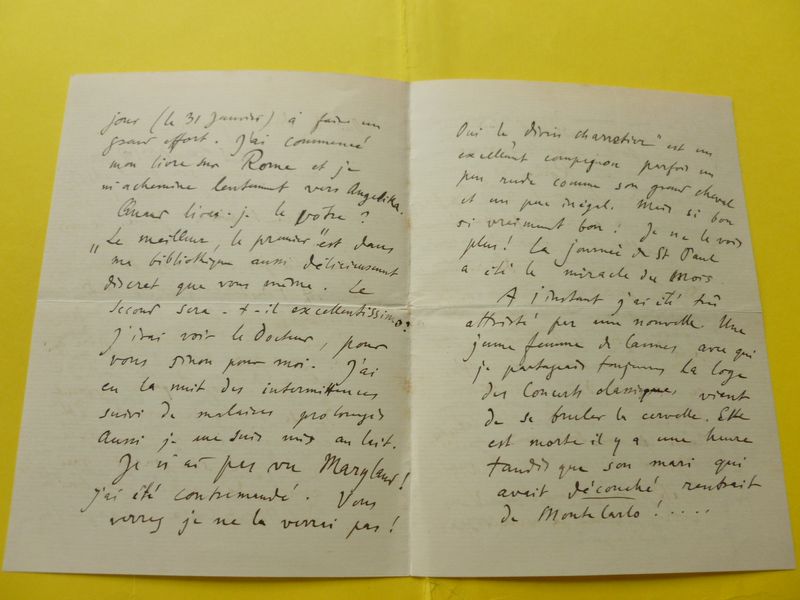 jour (le 31 Janvier) à faire un
grand effort. J'ai commencé
mon livre sur Rome et je
m'achemine lentement vers Angelika.
Quand lirai-je le vôtre ?
"Le meilleur, le premier" est dans
ma bibliothèque aussi délicieusement
discret que vous même. Le
second sera-t-il excellentissimo?
J'irai voir le Docteur, pour
vous sinon pour moi. J'ai
eu la nuit des intermittences
suivi de malaises prolongés
Aussi je me suis mis au lait.
Je n'ai pas vu Maryland!
j'ai été contremandé. Vous
verrez je ne la verrai pas!
Oui le divin charretier" est un
excellent compagnon parfois un
peu rude comme son grand cheval
et un peu inégal. Mais si bon
si vraiment bon! Je ne le vois
plus! La journée de St Paul
a été le miracle du mois.
A l'instant j'ai été très
attristé par une nouvelle. Une
jeune femme de Cannes avec qui
je partageais toujours la loge
des Concerts classiques vient
de se bruler la cervelle. Elle
est morte il y a une heure
tandis que son mari qui
avait découché, rentrait
de MonteCarlo!....